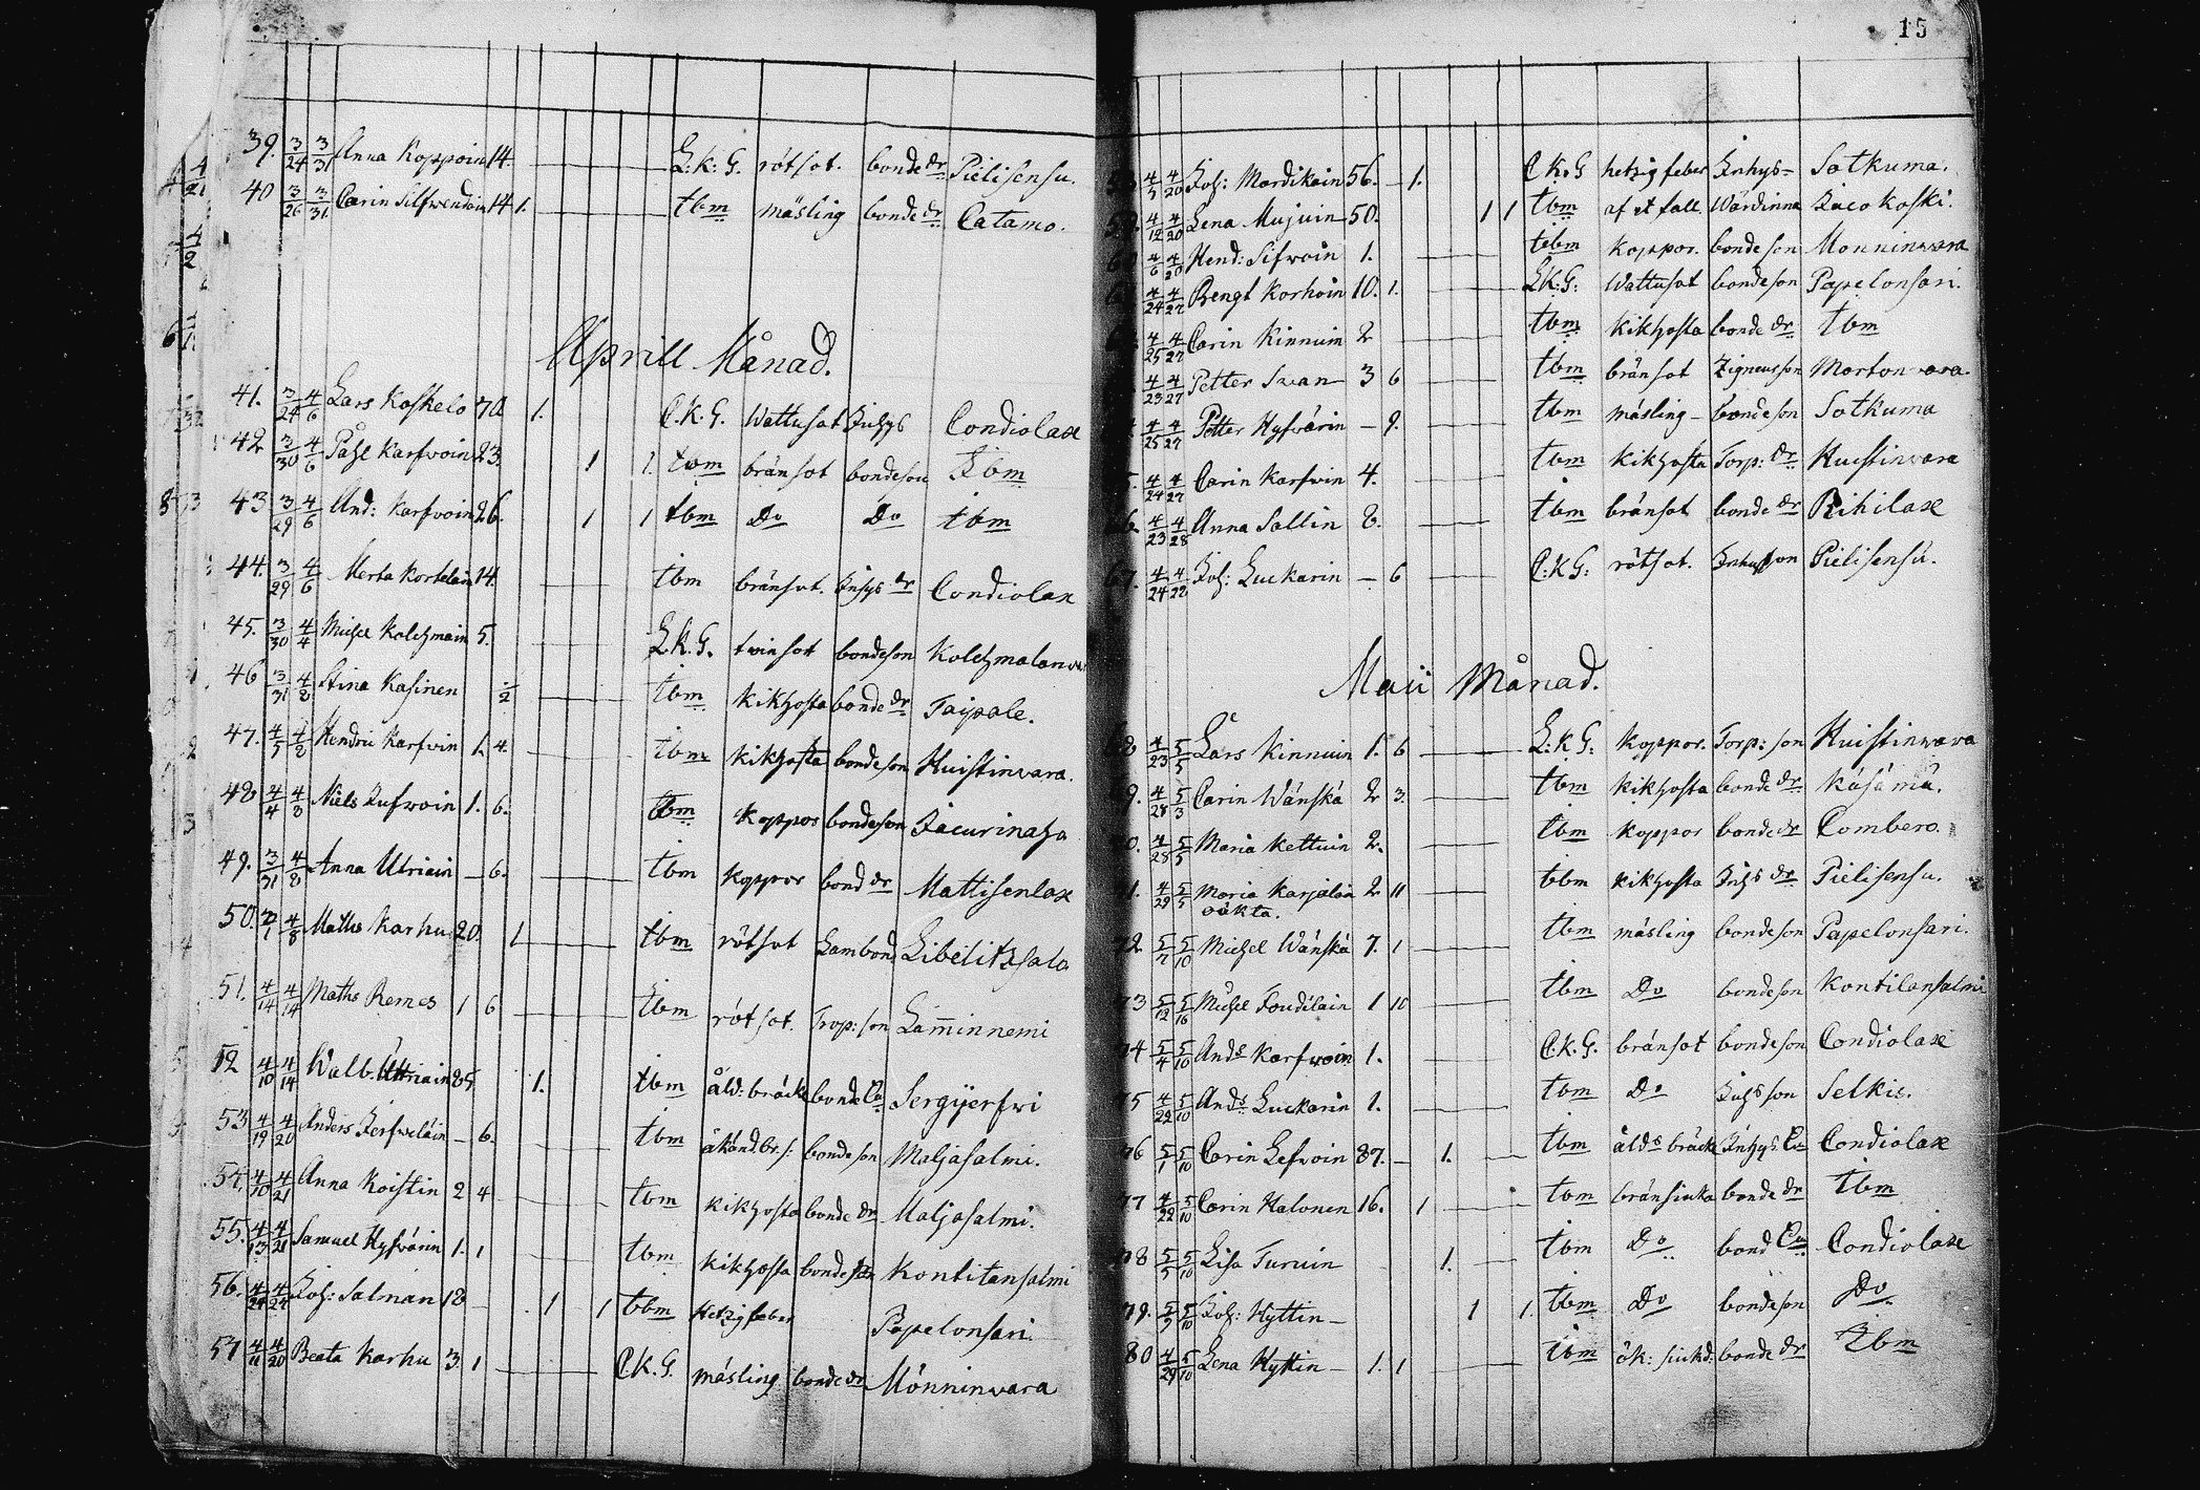 15
39. 3/24 3/31 Anna Koppoin 14. L:K:G. rötsot. bonde dr Pielisensu.
40 3/26 3/31 Carin Silfwendoin 14 1. tbm mäsling bonde dr Catamo.
Aprill Månad.
41. 3/24 4/6 Lars Koskelo 70 1. C.K.G. Wattusot Inhys Condiolax
42 3/30 4/6 Påhl Karfwoin 23. 1 1. tbm bränsot bondeson Ibm
43 3/29 4/6 And: Karfwoin 26. 1 1 tbm Do Do tbm
44. 3/29 4/6 Merta Kortelain 14. tbm bränsot. Inhys dr Condiolax
45. 3/30 4/4 Michel Kolehmain 5. L.K.G. twinsot bondeson Kolehmalanwa
46 3/31 4/8 Stina Kasinen 1/2 tbm kikhosta bonde dr Taipale.
47. 4/5 4/8 Hendric Karfvin 1. 4. tbm kikhosta bondeson Huistinvara.
48 4/4 4/8 Niels Iufwoin 1. 6. tbm Koppor bondeson
49. 3/31 4/8 Anna Utriain – 6. tbm Koppor bond dr Mattisenlax
50. 4/8 Maths Karhu 20. 1 tbm rötsot Libelitzsalo
51. 4/14 4/14 Maths Remes 1 6 tbm rötsot. Trop: son Lam̅innemi
52 4/10 4/14 Walb. Uttriain 85. 1. tbm åld: bräck bonde Ea Sergijerfwi
53 4/19 4/20 Anders Ierfweläin – 6. tbm bondeson Maljasalmi.
54. 4/10 4/21 Anna Koistin 2 4 tbm kikhosta bonde dr Maljasalmi.
55. 4/13 4/21 Samuel Hyfvärin 1. 1 tbm kikhosta bondeson Kontilansalmi
56. 4/24 4/24 Joh: Salman 18 1 1 tbm Hetzig feber Papelonsari.
57 4/11 4/20 Beata Karhu 3. 1 C.K.G. mäsling bonde dr Mönninvara
4/5 4/20 Joh: Mardikain 56. – 1. C.K.G hetzig feber Inhys – Sotkuma.
59. 4/12 4/20 Lena Mujuin 50. 1 1 tbm af et fall. Wärdinna Iuco Koski.
4/6 4/20 Hend: Sifwoin 1. tbm Koppor. bondeson Monninwara
4/24 4/27 Bengt Korhoin 10. 1. L.K.G: Wattusot bondeson Papelonsari.
4/25 4/27 Carin Kinnuin 2 tbm kikhosta bonde dr tbm
4/23 4/27 Petter Swan 3 6 tbm bränsot Martonvara.
4/25 4/27 Petter Hyfvärin – 9. tbm mäsling – bondeson Sotkuma
4/24 4/27 Carin Karfvin 4. tbm kikhosta Torp: dr Huistinvara
4/23 4/28 Anna Sallin 8. tbm bränsot bonde dr Rihilax
67. 4/24 4/28 Joh: Luckarin – 6 C:K.G: rötsot. Inhys son Pielisensu.
Maii Månad.
4/23 5/5 Lars Kinnuin 1. 6 L:K G: Koppor. Torp: son Huistinwara
9. 4/28 5/3 Carin Wänskä 2 3. tbm kikhosta bonde dr Käsämä.
4/28 5/5 Maria Kettuin 2. tbm Koppor bonde dr Combero.
4/29 5/5 Maria Karjalain 2 11 tbm kikhosta Inhs dr Pielisensu.
oäkta.
5/7 5/10 Michel Wänskä 7. 1 tbm mäsling bondeson Papelonsari.
73 5/12 5/16 Michel Toudilain 1 10 tbm Do bondeson Kontilansalmi
74 5/4 5/10 Ands Karfwoin 1. C.K.G. bränsot bondeson Condiolax
75 4/22 5/10 Ands Luckarin 1. tbm Do Inhs son Selkis.
76 5/1 5/10 Carin Lefwoin 87. – 1. tbm ålds bräck Inhys Ea Condiolax
77 4/22 5/10 Carin Halonen 16. 1 tbm bränsiuka bonde dr Tbm
78 5/5 5/10 Lisa Turuin 1. tbm Do bond Ea Condiolax
79. 5/5 5/10 Joh: Hyttin – 1 1. tbm Do bondeson Do
80 4/29 5/10 Lena Hyttin – 1. 1 tbm ok: siukd: bonde dr Ibm